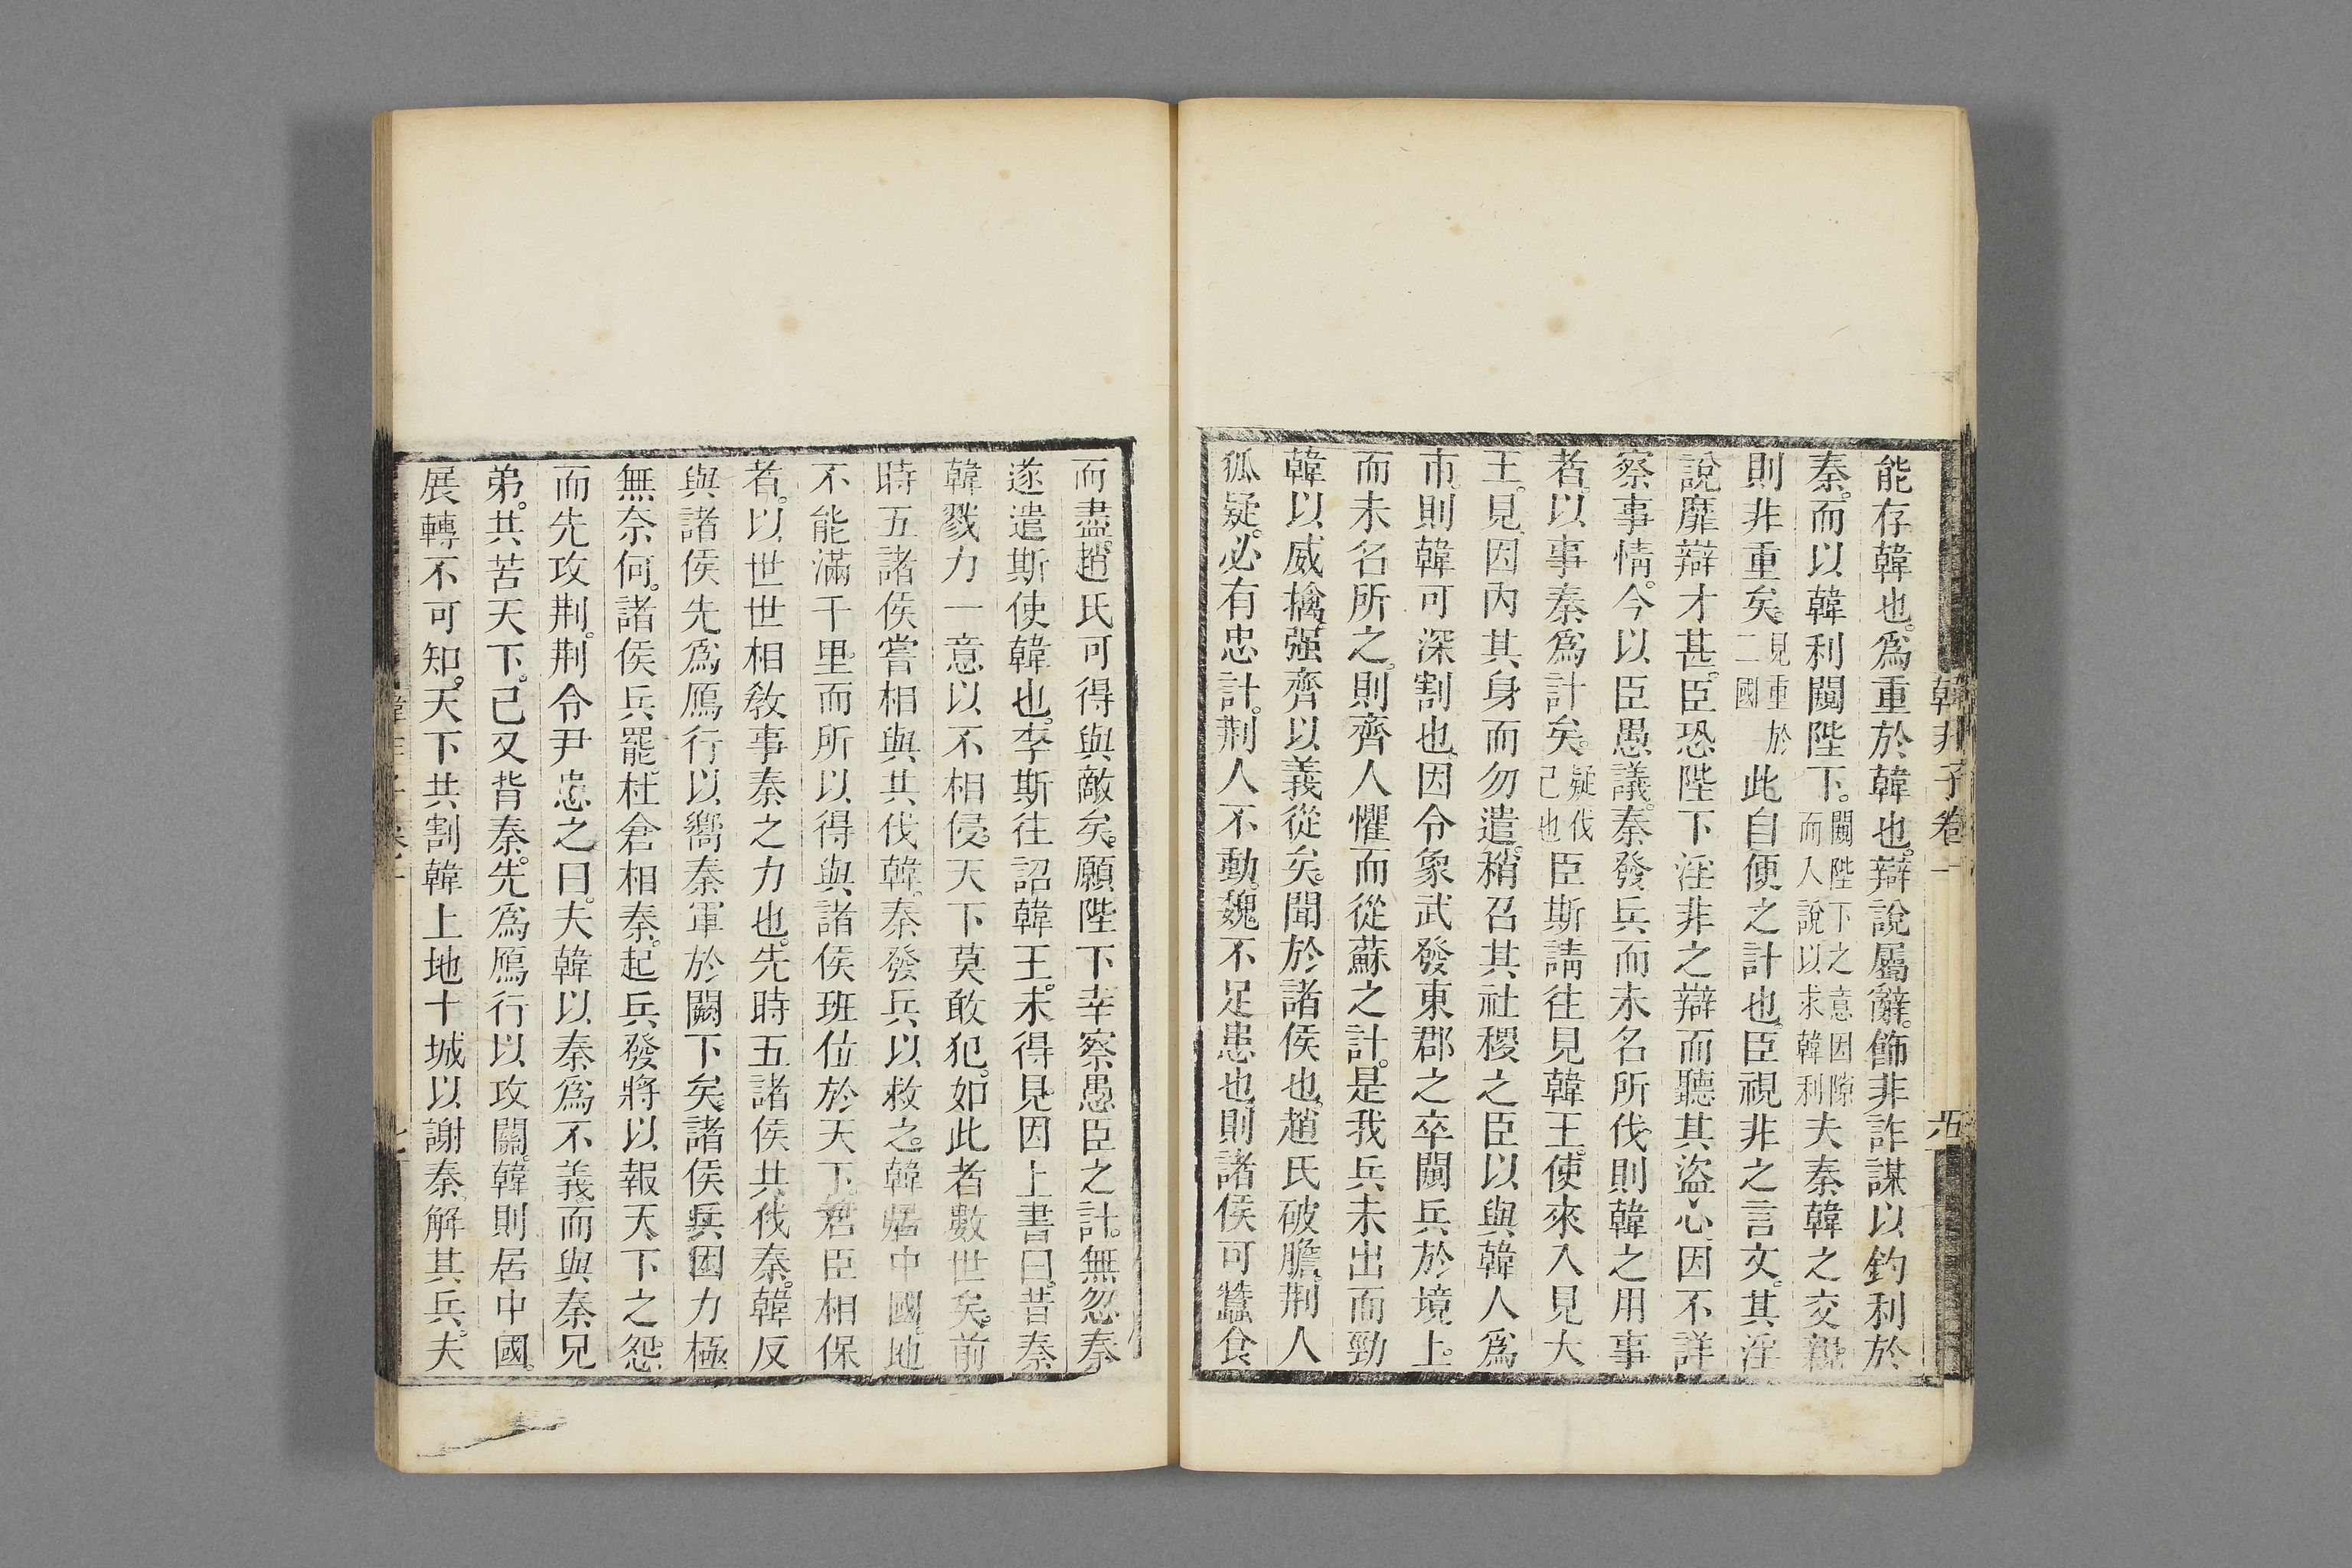 能存韓也。爲重於韓也。辯說屬辭。飾非詐謀以釣利於
秦。而以韓利闚陛下。闚陛下之意因隙而入說以求韓利夫秦韓之交親
則非重矣。見重於二國此自便之計也。臣視非之言文。其淫
說靡辯才甚。臣恐陛下淫非之辯而聽其盜心。因不詳
察事情。今以臣愚議。秦發兵而未名所伐則韓之用事
者。以事秦爲計矣。疑伐己也臣斯請往見韓王。使來入見大
王。見。因內其身而勿遣。稍召其社稷之臣以與韓人爲
市。則韓可深割也。因令象武發東郡之卒闚兵於境上。
而未名所之。則齊人懼而從蘇之計。是我兵未出而勁
韓以威擒。强齊以義從矣。聞於諸侯也。趙氏破膽。荆人
狐疑。必有忠計。荆人不動。魏不足患也。則諸侯可蠶食
韓非子卷一
五
而盡。趙氏可得與敵矣。願陛下幸察愚臣之計。無忽秦
遂遣斯使韓也。李斯往詔韓王。未得見。因上書曰。昔秦
韓戮力一意以不相侵。天下莫敢犯。如此者數世矣。前
時五諸侯嘗相與共伐韓。秦發兵以救之。韓居中國。地
不能滿千里。而所以得與諸侯班位於天下。君臣相保
者。以世世相敎事秦之力也。先時五諸侯共伐秦。韓反
與諸侯先爲鴈行以嚮秦軍於闕下矣。諸侯兵困力極
無奈何。諸侯兵罷。杜倉相秦。起兵發將以報天下之怨。
而先攻荆。荆令尹患之曰。夫韓以秦爲不義。而與秦兄
弟。共苦天下。已又背秦。先爲鴈行以攻關。韓則居中國。
展轉不可知。天下共割韓上地十城以謝秦。解其兵。夫